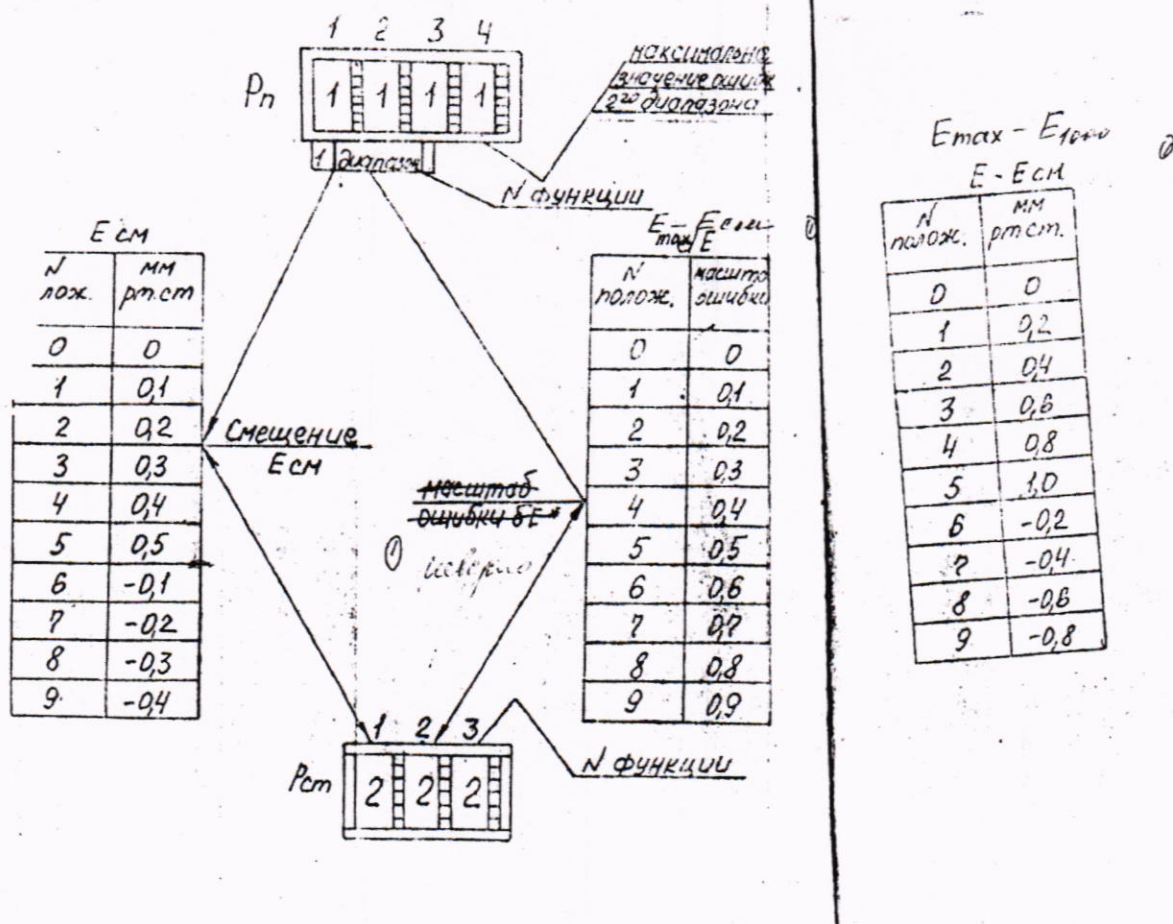 1 2 3 4
Рп
1 1 1 1
1 диапазон
максимально
значение ошиб
2го диапазона
N функции
Е см
N
лож.
мм
рт.ст
0 0
1 0,1
2 0,2
3 0,3
4 0,4
5 0,5
6 -0,1
7 -0,2
8 -0,3
9 -0,4
Смещение
Е см
масштаб
ошибки δЕ
Emax - Есм
Е
N
полож.
масшта
ошибки
0 0
1 0,1
2 0,2
3 0,3
4 0,4
5 0,5
6 0,6
7 0,7
8 0,8
9 0,9
1 2 3
Рст
2 2 2
N функции
Emax - E1000
Е - Есм
N
полож.
мм
рт.ст.
0 0
1 0,2
2 0,4
3 0,6
4 0,8
5 1,0
6 -0,2
7 -0,4
8 -0,6
9 -0,8